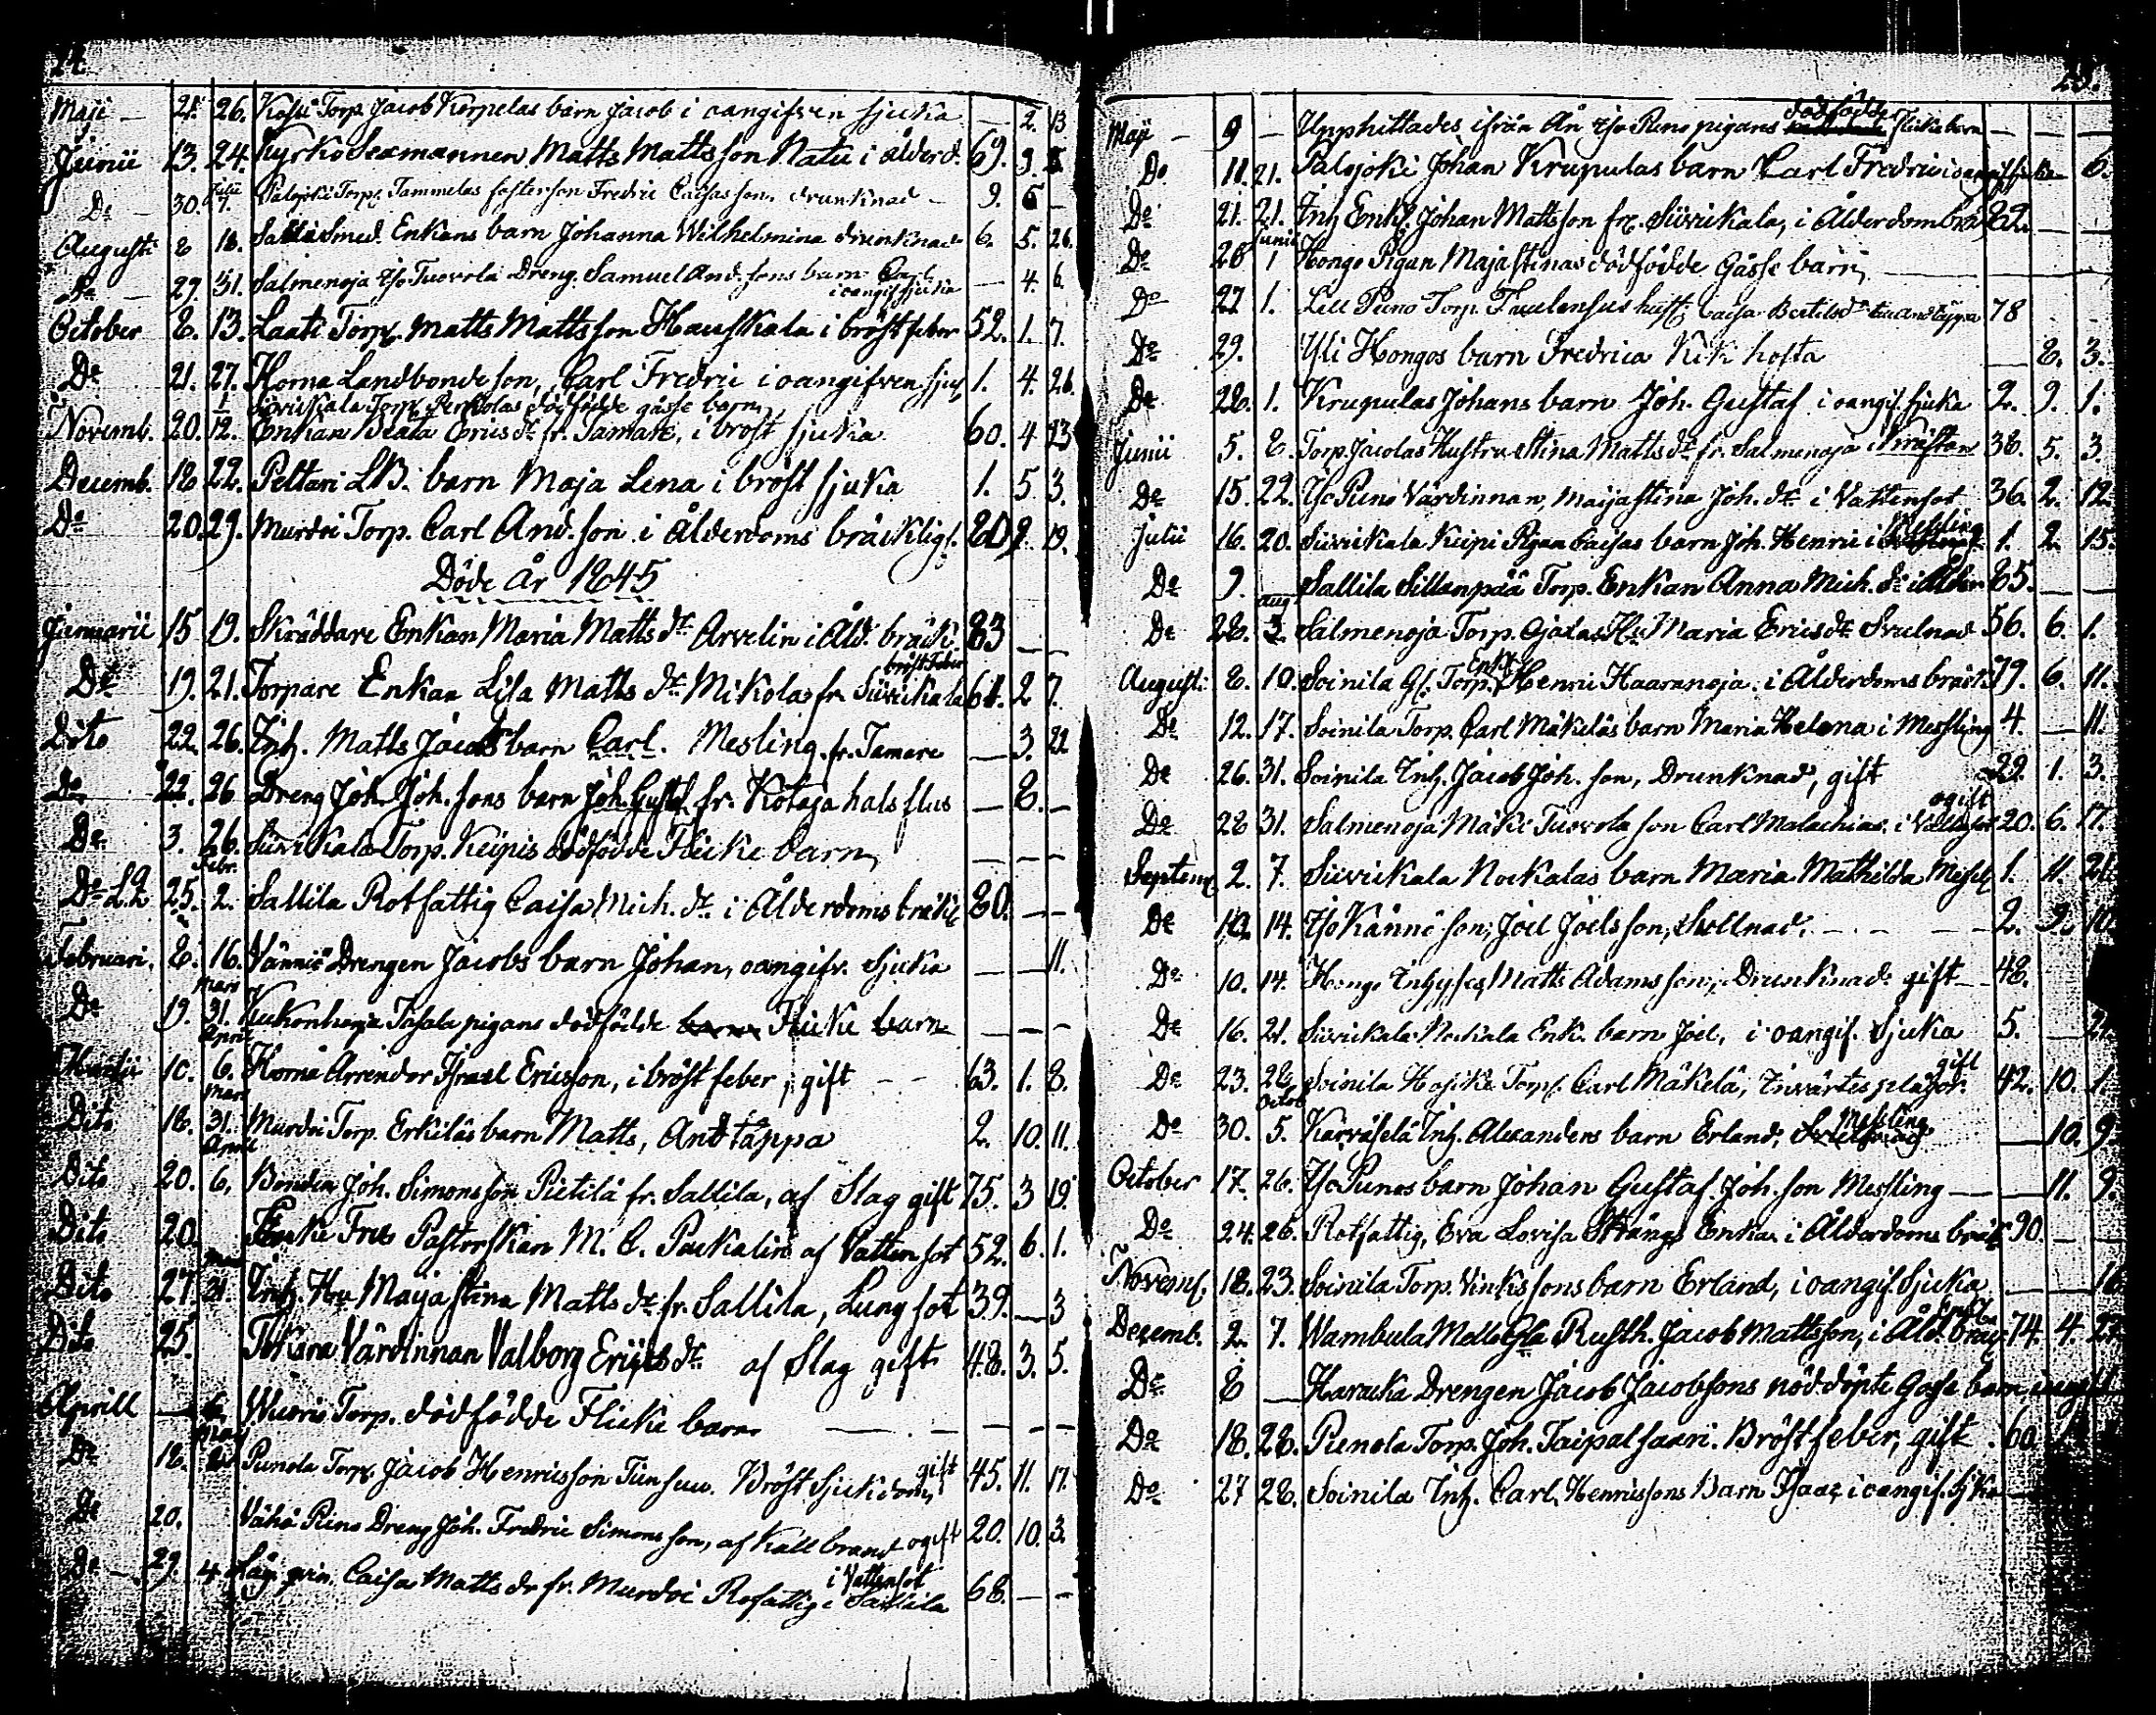 24.
Maji — 21. 26. Torp. Jacob Korpelas barn Jacob i oangifven sjuka — 2. 13
Junii 13. 24. Kyrko Sexmannen Matts Mattsson Natu i ålderd. 69. 9.
Do — 30. Julii 7. Torp. Tammelas fosterson Fredric Caisas son. drunknad — 9. 6 —
Augusti 8 18. Smed. Enkans barn Johanna Wilhelmina drunknad 6. 5. 26.
Do — 29. 31. Salmenoja Yso Tuovola Dreng Samuel And. sons barn Carl i oangif. sjuka — 4. 6.
October 8. 13. Laati Torp. Matts Mattsson Hauskala i bröstfeber 52. 1. 7.
De 21. 27. Horna Landbonde son, Carl Fredric i oangifven sjuk 1. 4. 26.
1 Siivikkala Torp. dödfödde gåsse barn,
Novemb. 20. 12. Enkan Beata Erics dr. fr. Tamare, i bröst sjuka 60. 4 23
Decemb. 18 22. Peltari LB. barn Maja Lena i bröst sjuka 1. 5 3.
Do 20. 29. Murdoi Torp. Carl And. son i Ålderdoms bräcklig. 80 2. 19.
Döde år 1845
Januarii 15 19. Skräddare Enkan Maria Matts dr. Arvelin i Åld. bräck. 83 — —
De 19. 21. Torpare Enkan Lisa Matts dr. Mikolas fr. Siivikala bröst feber 61. 2 7.
Dito 22. 26. Inh. Matts Jacobs barn Carl. Mesling. fr. Tamare — 3. 22
Do 22. 26 Dreng Joh. Joh. sons barn Joh. Gustaf fr. Kotaja halsflus — 8. —
De 3. 26. Siivikala Torp. Keipis dödfödde Flicke barn, — — —
De 25. Febr. 2. Sallila Rotfattig Caisa Mich. dr. i Ålderdoms bräckl 80. — —
Februari. 8. 16. Drengen Jacobs barn Johan, oangifv. sjuka — — 11.
De 19. Mars 31. Tasala pigans dödfödde barn Flicke barn — — —
Martii 10. April 6. Horna Arrendor Israel Ericsson, i bröst feber, gift — — 63. 1. 8.
Dito 18. Mars 31. Murdoi Torp. Erkiläs barn Matts, Andtäppa 2. 10. 11.
Dito 20. April 6. Bonden Joh. Simonsson Pietilä fr. Sallila, af Slag gift 75. 3 19.
Dito 20. Enke Fru Pastorskan M. C. Paukalin af Vattensot 52. 6. 1.
Dito 27. Mars 31. Inh. Hu Maijastina Matts dr. fr. Sallila, Lungsot 39. — 3
Dito 25. Värdinnan Valborg Erics dr. af Slag gift 48. 3. 5.
Aprill — 6. Wuorio Torp. dödfödde Flicke barn — — —
De 18. Maj Punola Torp. Jacob Henricsson Bröst Sjukdom gift 45. 11. 17.
De 20. Vähä Piino Dreng Joh. Fredric Simonsson, af kallbrand ogift 20. 10. 3.
De — 29. 4 Caisa Matts dr fr. Murdoi Rofattig i Sallila i Vattensot 68. — —
Maji — 9 — Upphittades ifrån Ån Yso Puno pigans dödfödde Flicke barn — — —
Do 11. 21. Palojoki Johan Krupulas barn Carl Fredric i oangif sjuka — 6.
De 21. 21. Inh Enkl. Johan Mattsson fr. Siivikala, i Ålderdoms bräc 82. — —
De 28 Junii 1 Hongo Pigan Majastinas dödfödde Gåsse barn,
De 27 1. Lill Puno Torp. hust. Caisa Bertilsdr andtäppa 78
De 29. Yli Hongos barn Fredrica Kik hosta — 8. 3.
De 28. 1. Krupulas Johans barn Joh. Gustaf i oangif. sjuka 2. 9. 1.
Junii 5. 8. Torp. Jacolas Hustru Stina Matts dr. fr. Salmenoja 38. 5. 3.
De 15. 22. Yso Puno Värdinnan, Maijastina Joh. dr. i Vattensot 36. 2. 12.
Julii 16. 20. Siivikala Keipi Pigan Caisas barn Joh. Henric i Messling 1. 2. 15.
De 9. — Sallila Sillanpää Torp. Enkan Anna Mich. dr. i Ålder 85. — —
De 28. Aug. 3. Salmenoja Torp. Ojalas Hu Maria Ericsdr Svulnad 56. 6. 1.
Augusti 8. 10. Soinila Gl. Torp. Enkl. Henric Haaranoja i Ålderdoms bräck 79. 6. 11.
De 12. 17. Soinila Torp. Carl Mäkeläs barn Maria Helena i Messling 4. — 11.
De 26. 31. Soinila Inh. Jacob Joh. son, Drunknad, gift 29. 1. 3.
De 28 31. Salmenoja Mäki Tuovola son Carl Malachias i Vattusot ogift 20. 6. 17.
Septem 2. 7. Siivikala Nockalas barn Maria Mathilda Messl 1. 11. 26.
De 10. 14. Yso Kånni son, Joel Joelsson, Svollnad. — — 2. 9. 10.
De 10. 14. Hongo Inhyses Matts Adamsson, Drunknad gift — 48.
De 16. 21. Siivikala Nockala Enk. barn Joel, i oangif. Sjuka 5. — 24
De 23. 28 Soinila Hasike Torp. Carl Mäkelä, Invärtes plågor. gift 42. 10. 1
Do 30. Octob 5. Karväselä Inh. Alexanders barn Erland, Messling — 10. 9
October 17. 26. Yso Punos barn Johan Gustaf Joh. son Messling — — 11. 9.
De 24. 26. Rotfattig, Eva Lovisa Strångs Enka, i Ålderdoms bräck 90. — —
Novemb. 18. 23. Soinila Torp. Vinkis sons barn Erland, i oangif. Sjuka — — 16
Decemb. 2. 7. Wambula Mello Gla Rusth. Jacob Mattsson, i Åld. bräck Enkl. 74. 4. 27
De 8 — Haraka Drengen Jacob Jacobsons nöddöpte Gosse barn
De 18. 28. Punola Torp. Joh. Taipalsaari. Bröstfeber, gift 60
Do 27 28. Soinila Inh. Carl Henricssons Barn Isaac i oangif. Sjka —